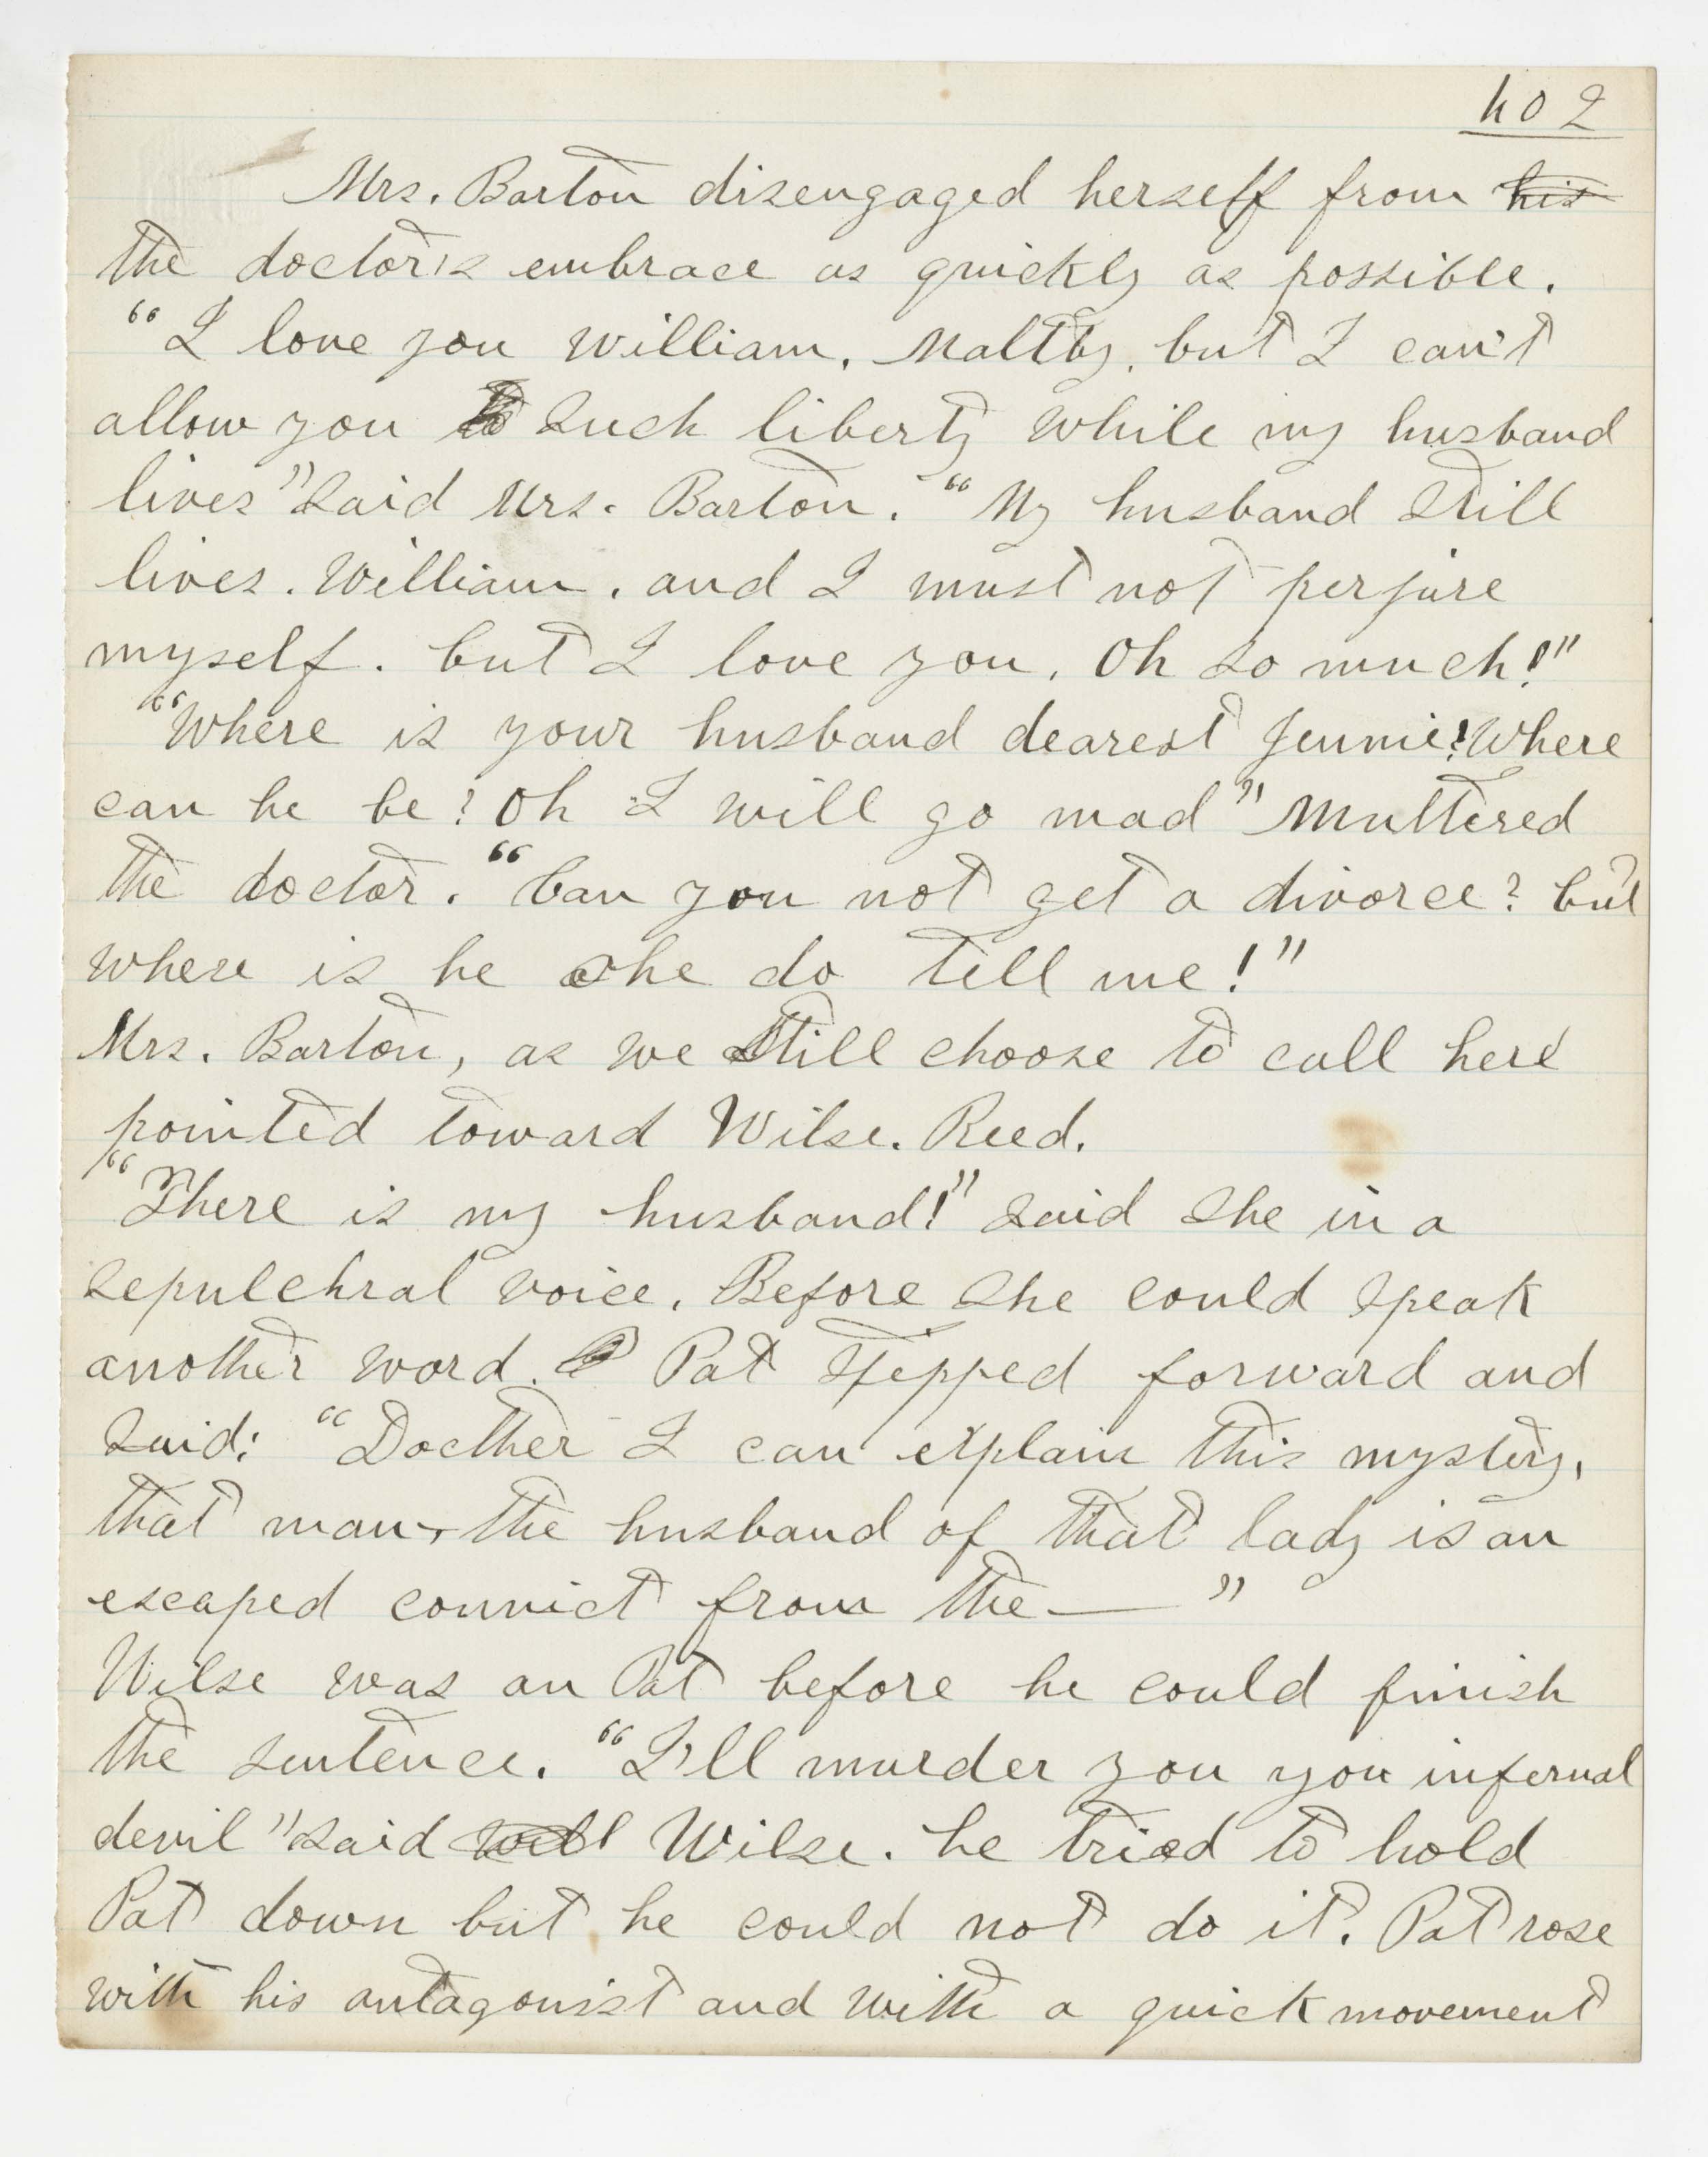 402
Mrs. Barton disengaged herself from his
the doctor's embrace as quickly as possible.
"I love you William. Maltby. but I can't
allow you to such liberty while my husband
lives" said Mrs. Barton. "My husband still
lives. William. and I must not perjure
myself. but I love you. Oh so much!"
"Where is your husband dearest Jennie? Where
can he be? Oh I will go mad" muttered
the doctor. "Can you not get a divorce? but
where is he ohe do tell me!"
Mrs. Barton, as we still choose to call here
pointed toward Wilse. Reed.
"There is my husband!" said she in a
sepulchral voice. Before she could speak
another word. Pat stepped forward and
said: "Docther I can explain this mystery,
that man, the husband of that lady is an
escaped convict from the — "
Wilse was an Pat before he could finish
the sentence. "I'll murder you you infernal
devil" said will Wilse. he tried to hold
Pat down but he could not do it. Pat rose
with his antagonist and with a quick movement